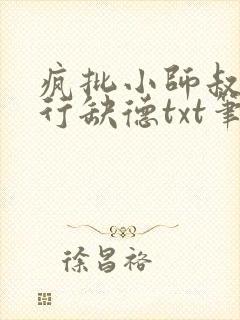 疯批小师叔
行缺德txt笔
徐昌裕